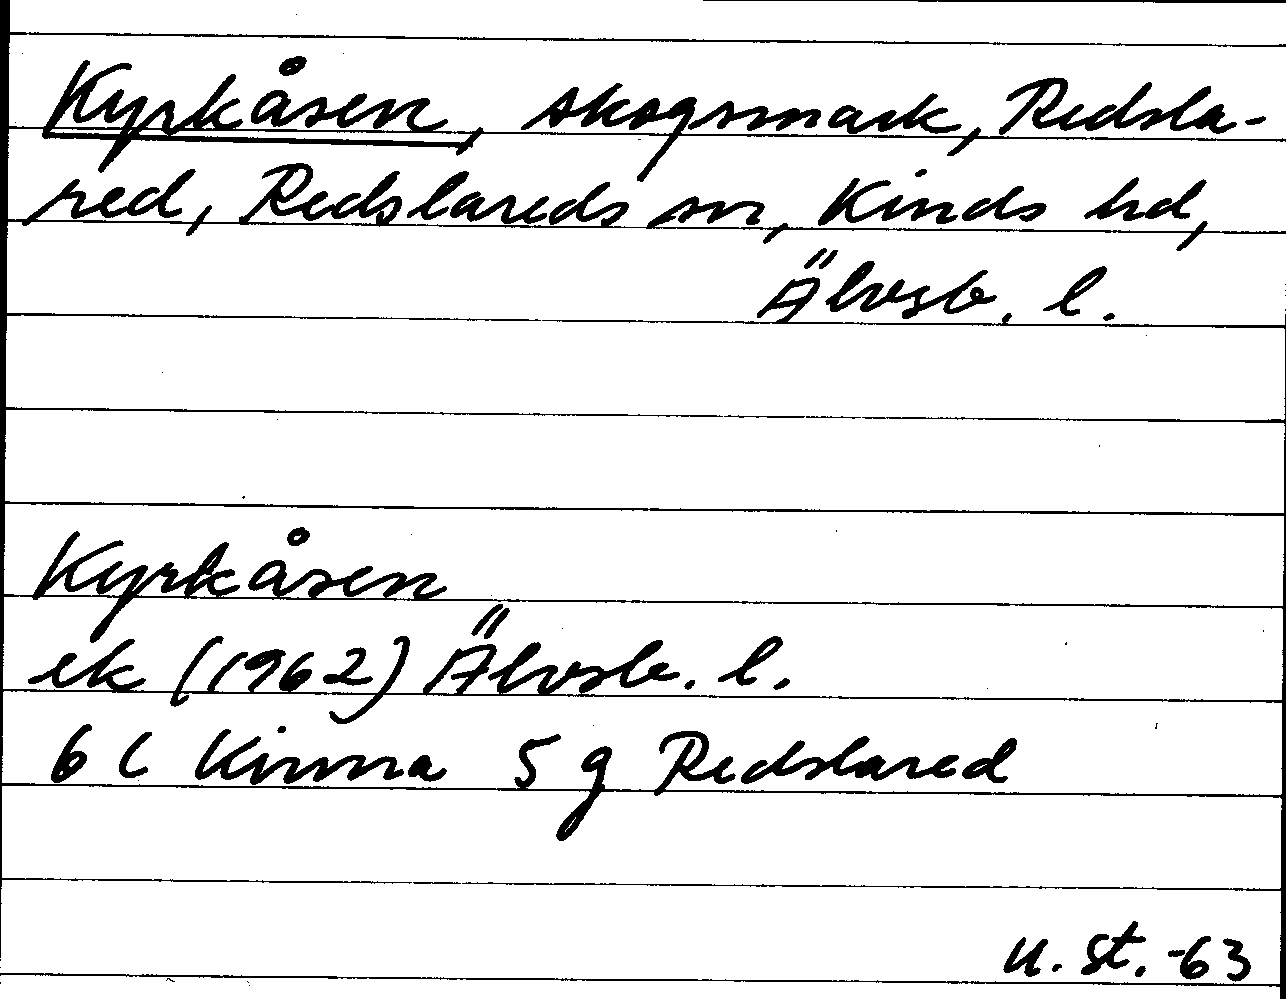 Kyrkåsen, skogsmark, Redsla-
red, Redslareds sn, Kinds hd,
Älvsb. l.
Kyrkåsen
ek (1962) Älvsb. l.
6 C Kinna 5 g Redslared
U. St. -63